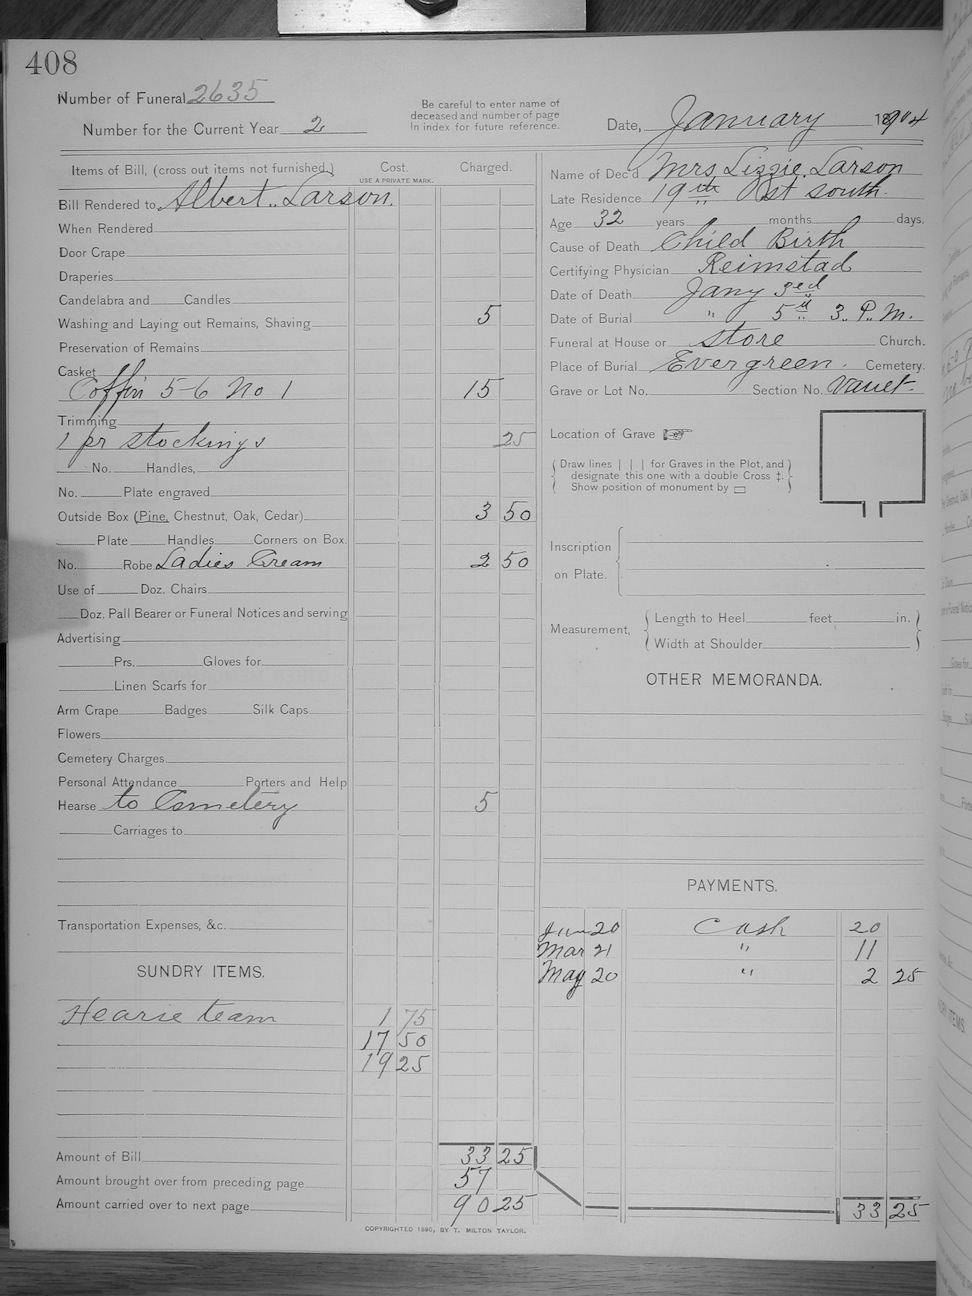 408
Number of Funeral 2635
Number for the Current Year 2
Be careful to enter name of
deceased and number of page
in index for future reference.
Date, January 1904
Items of Bill, (cross out items not furnished.)
Cost.
USE A PRIVATE MARK.
Charged.
Bill Rendered to Albert Larson.
When Rendered
Door Crape
Draperies
Candelabra and Candles
Washing and Laying out Remains, Shaving 5
Preservation of Remains
Casket
Coffin 5-6 No 1 15
Trimming
1 pr stockings 25
No. Handles,
No. Plate engraved
Outside Box (Pine, Chestnut, Oak, Cedar) 3 50
Plate Handles Corners on Box.
No. Robe Ladies Cream 2 50
Use of Doz. Chairs
Doz. Pall Bearer or Funeral Notices and serving
Advertising
Prs. Gloves for
Linen Scarfs for
Arm Crape Badges Silk Caps
Flowers
Cemetery Charges
Personal Attendance Porters and Help
Hearse to Cemetery 5
Carriages to
Transportation Expenses, &c.
SUNDRY ITEMS.
Hearse team 1 75
17 50
19 25
Amount of Bill 33 25
Amount brought over from preceding page 57
Amount carried over to next page 90 25
COPYRIGHTED 1890, BY T. MILTON TAYLOR.
Name of Dec'd Mrs Lizzie Larson
Late Residence 19th south
Age 32 years months days.
Cause of Death Child Birth
Certifying Physician Reimstad
Date of Death Jany 3ed
Date of Burial " 5th 3 P.M.
Funeral at House or store Church.
Place of Burial Evergreen. Cemetery.
Grave or Lot No. Section No.
Location of Grave
Draw lines | | | for Graves in the Plot, and
designate this one with a double Cross ‡.
Show position of monument by ▭
Inscription
on Plate.
Measurement,
Length to Heel feet in.
Width at Shoulder
OTHER MEMORANDA.
PAYMENTS.
20 Cash 20
Mar 21 " 11
May 20 " 2 25
33 25